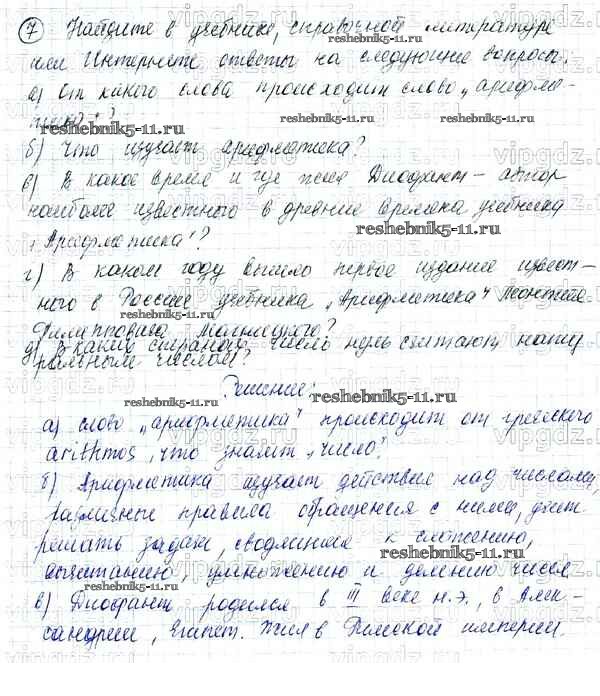 7 Найдите в учебнике, справочной литературе
или Интернете ответы на следующие вопросы:
а) От какого слова происходит слово „арифме-
тика"?
reshebnik5-11.ru reshebnik5-11.ru
б) Что изучает арифметика?
в) В какое время и где жил Диофант – автор
наиболее известного в древние времена учебника
reshebnik5-11.ru
„Арифметика"?
г) В каком году вышло первое издание извест-
ного в России учебника „Арифметика" Леонтия
Филипповича Магницкого?
д) В каких странах число нуль считают нату
ральным числом?
Решение:
reshebnik5-11.ru reshebnik5-11.ru
а) слово „арифметика" происходит от греческого
arithmos, что значит „число".
б) Арифметика изучает действия над числами,
различные правила обращения с ними, учит
решать задачи, сводящиеся к сложению,
reshebnik5-11.ru reshebnik5-11.ru
вычитанию, умножению и делению чисел
в) Диофант родился в III веке н.э., в Алек-
сандрии, Египет. Жил в Римской империи.
vipgdz.ru